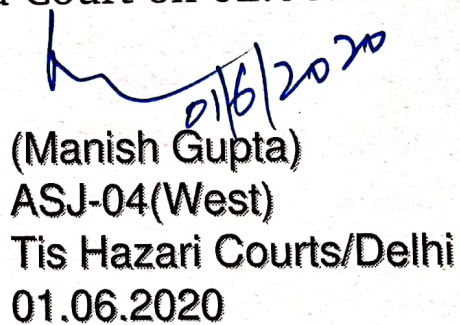 Court on 02.
01/6/2020
(Manish Gupta)
ASJ-04(West)
Tis Hazari Courts/Delhi
01.06.2020